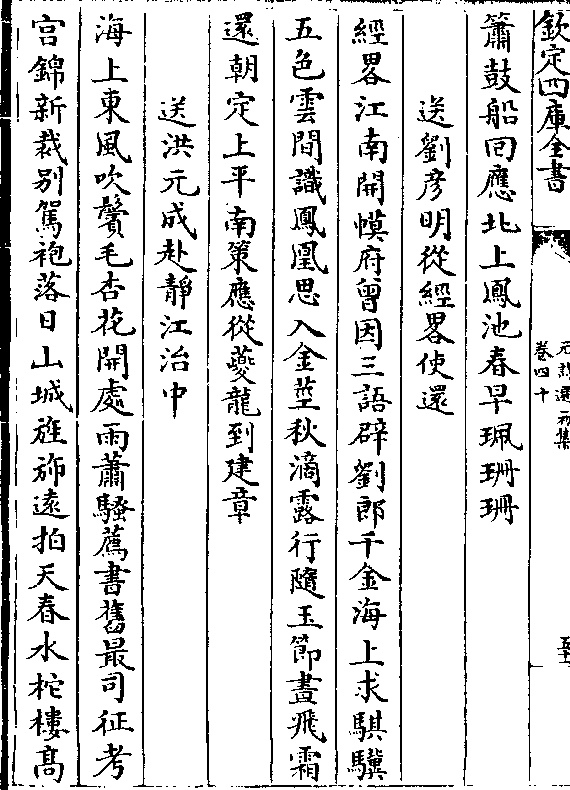 欽定四庫全書
元詩選初集
卷四十
簫鼓船囘應北上鳳池春早珮珊珊
送劉彥明從經畧使還
經畧江南開幙府曾因三語辟劉郎千金海上求騏驥
五色雲間識鳳凰思入金莖秋滴露行隨玉節晝飛霜
還朝定上平南策應從夔龍到建章
送洪元成赴靜江治中
海上東風吹鬢毛杏花開處雨蕭騷薦書舊最司征考
宫錦新裁别駕袍落日山城旌斾遠拍天春水柁樓髙